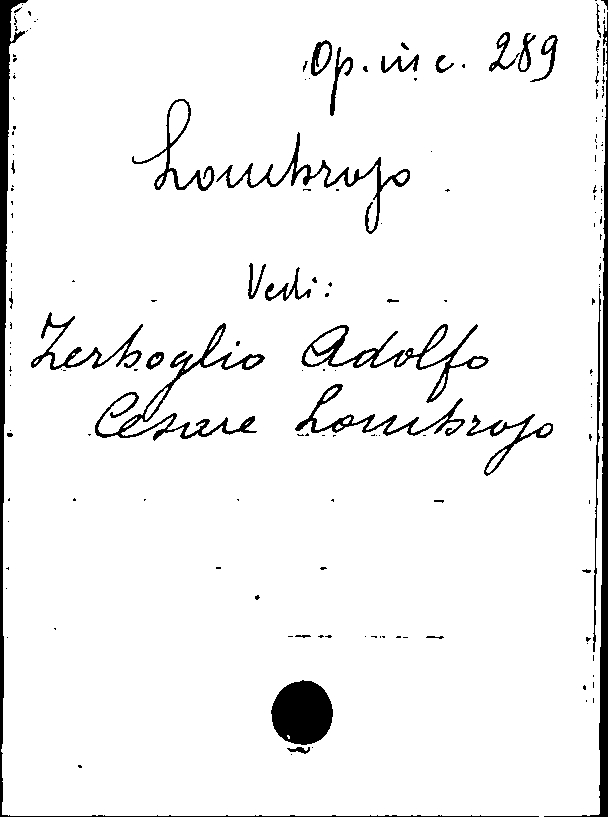 Op. in c. 289
Lombroso
Vedi:
Zerboglio Adolfo
Cesare Lombroso